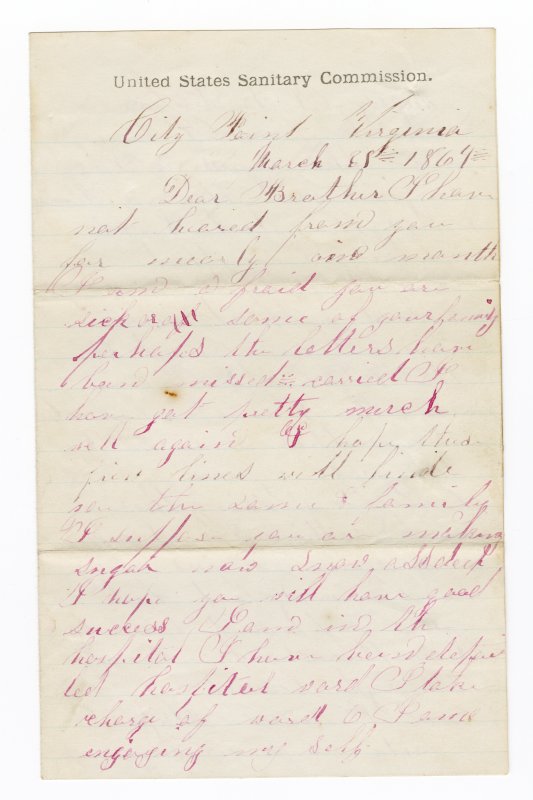 United States Sanitary Commission.
City Point Virginia
March 1864
Dear Brother I have
not heared from you
for nearly one month
I am a fraid you are
sick or some of your family
perhaps the letters have
band missed = carried I
have got pretty much
well again I hope thes
few lines will finde
you the same & family
I suppose you ar making
sugar now Snow deep
I hope you will have good
success I am in the
hospital I have beand
ted hospital ward I take
charge of ward 6 I and
engoying my self